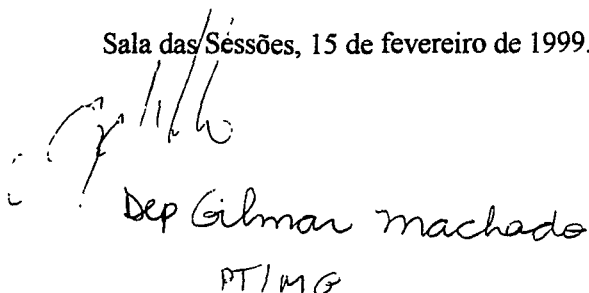 Sala das Sessões, 15 de fevereiro de 1999.
Dep Gilmar Machado
PT/MG